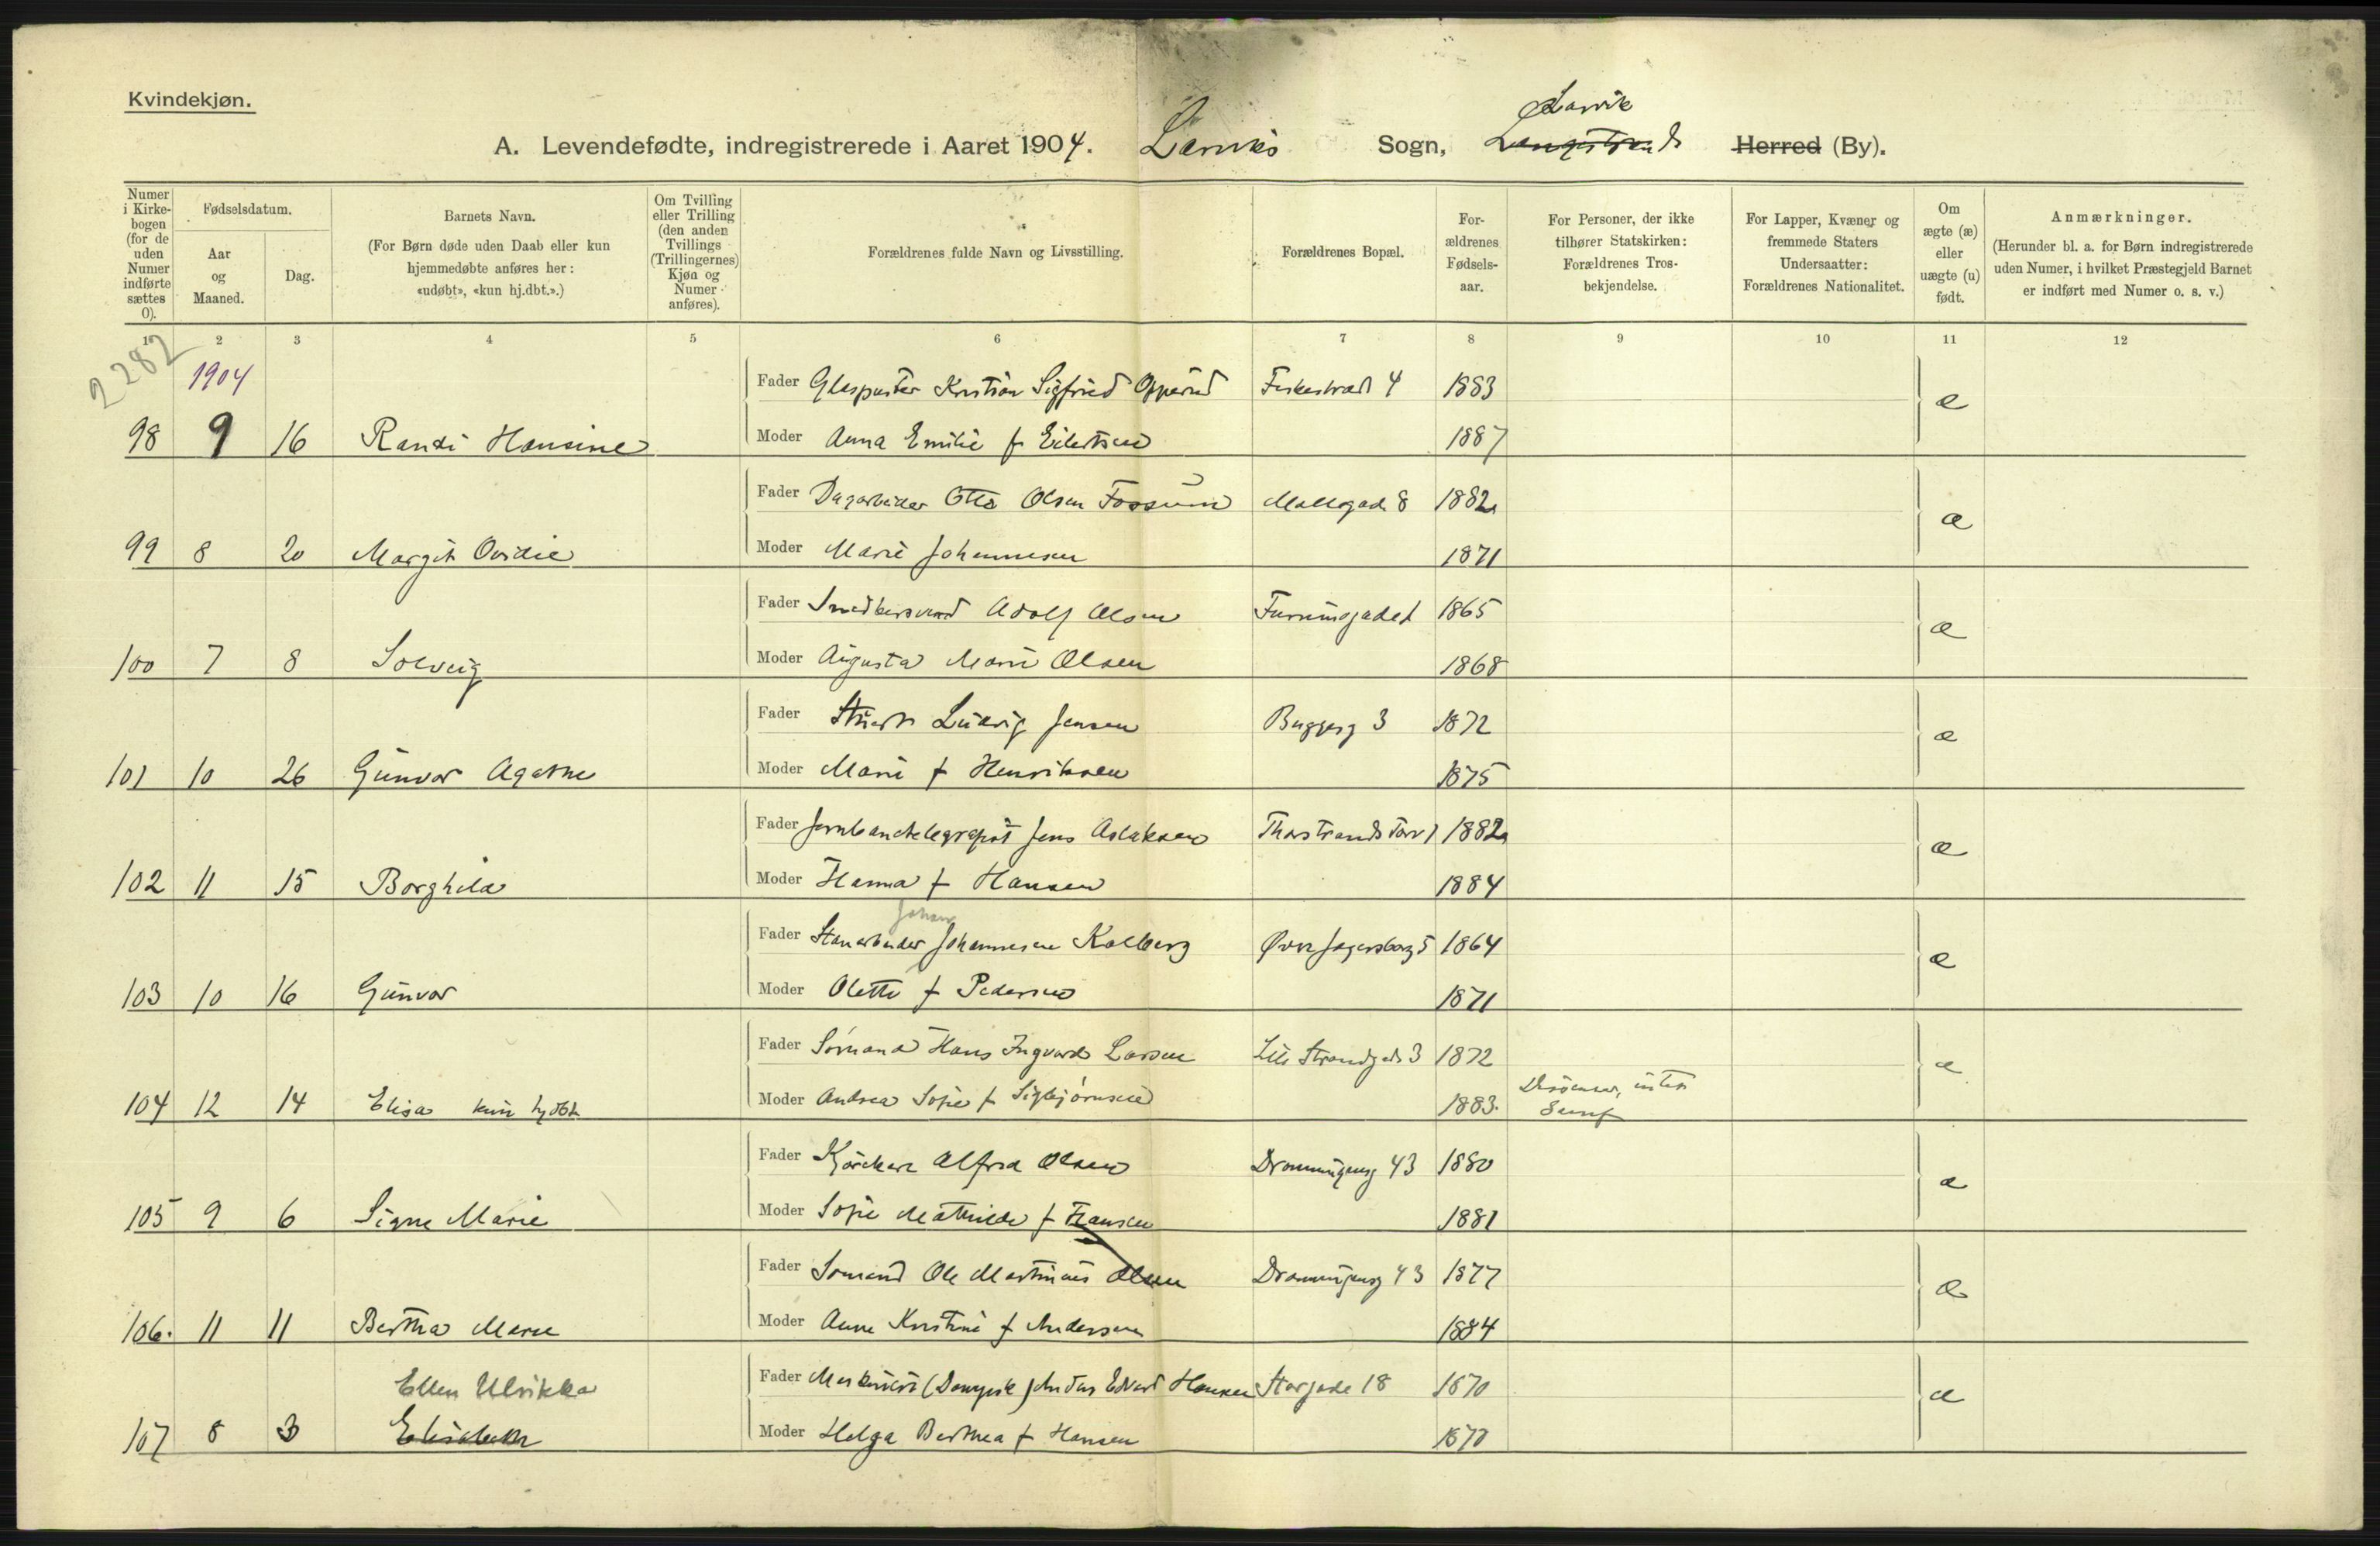 Kvindekjøn.
A. Levendefødte, indregistrerede i Aaret 1904. Larviks Sogn, Langestrands Larvik Herred (By).
Numer i Kirkebogen (for de uden Numer indførte sættes 0).
Fødselsdatum.
Aar og Maaned.
Dag.
Barnets Navn.
(For Børn døde uden Daab eller kun hjemmedøbte anføres her: «udøbt», «kun hj.dbt.».)
Om Tvilling eller Trilling (den anden Tvillings (Trillingernes) Kjøn og Numer anføres).
Forældrenes fulde Navn og Livsstilling.
Forældrenes Bopæl.
Forældrenes Fødselsaar.
For Personer, der ikke tilhører Statskirken: Forældrenes Trosbekjendelse.
For Lapper, Kvæner og fremmede Staters Undersaatter: Forældrenes Nationalitet.
Om ægte (æ) eller uægte (u) født.
Anmærkninger.
(Herunder bl. a. for Børn indregistrerede uden Numer, i hvilket Præstegjeld Barnet er indført med Numer o. s. v.)
1 2 3 4 5 6 7 8 9 10 11 12
2282
1904
Fader Glaspuster Kristian Sigfried Opperud Fiskestræd 4 1883 æ
98 9 16 Randi Hansine Moder Anna Emilie f Eilertsen 1887
Fader Dagarbeider Otto Olsen Fossum Møllegade 8 1882 æ
99 8 20 Margit Ovidie Moder Marie Johannesen 1871
Fader Smedkersvend Adolf Olsen 1865 æ
100 7 8 Solveig Moder Augusta Marie Olsen 1868
Fader Ludvig Jensen Buggesg 3 1872 æ
101 10 26 Gunvor Agathe Moder Marie f Henriksen 1875
Fader Jernbanetelegrafist Jens Aslaksen Thorstrands Torv 1 1882 æ
102 11 15 Borghild Moder Hanna f Hansen 1884
Johan
Fader Stenarbeider Johannesen Kolberg Øvre Jegersborg 5 1864 æ
103 10 16 Gunvor Moder Olette f Pedersen 1871
Fader Sømand Hans Ingvard Larsen Lille Strandgade 3 1872 æ
104 12 14 Elisa kun hjdbt Moder Andrea Sofie f Sigbjørnsen 1883. Dissenter,
Fader Kjørekar Alfred Olsen Dronningensg 43 1880 æ
105 9 6 Signe Marie Moder Sofie Mathilde f Fransen 1881
Fader Sømand Ole Martinius Olsen Dronningensg 43 1877 æ
106. 11 11 Bertha Marie Moder Anne Kristine f Andersen 1884
Ellen Ulrikka Fader Maskinist (Dampsk) Anton Edvard Hansen Storgade 18 1870 æ
107 8 3 Elisabeth Moder Helga Berthea f Hansen 1870